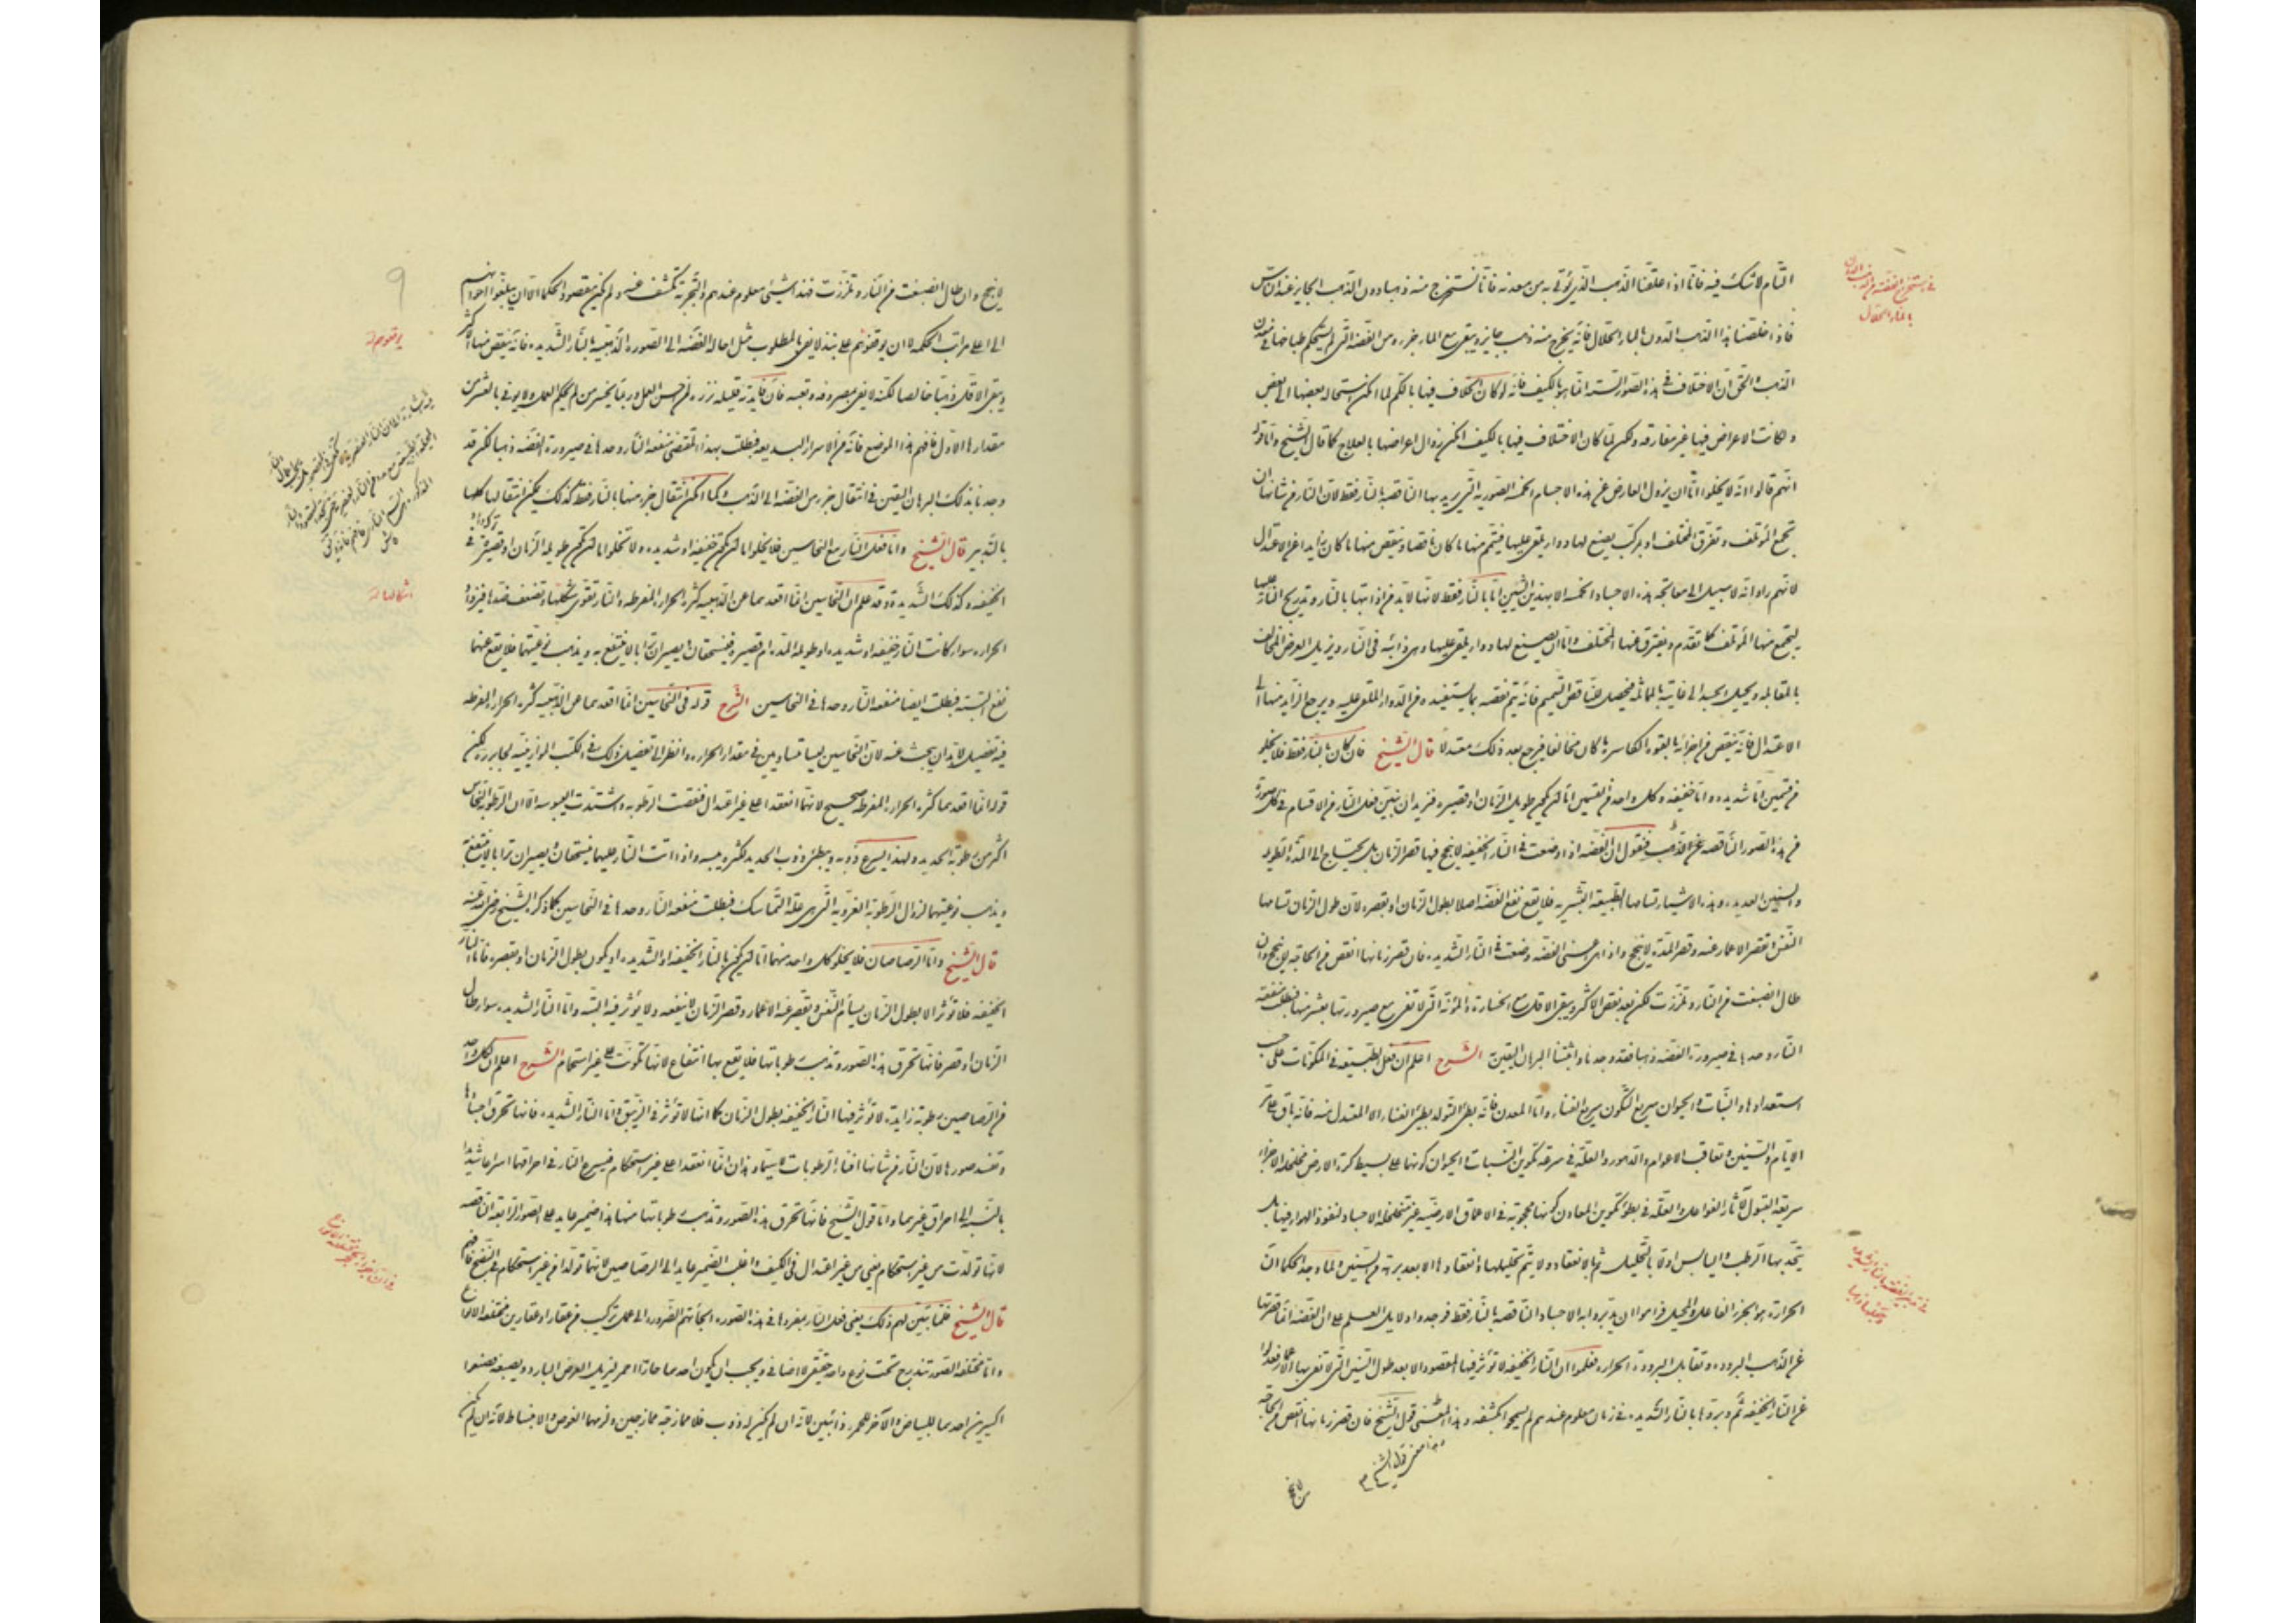 التام لا شك فيه فانا اذا علقنا الذهب الذي يؤتى به من معدنه فانا نستخرج منه ذهبا دون الذهب الجايز عند الناس
فاذا خلصنا هذا الذهب الدون بالماء الحلال فانه يخرج منه ذهب جايز ويبقى مع الماء جزء من الفضه التي لم يستحكم طباخها في معدن
الذهب والحق ان الاختلاف في هذه الصور الستة انما هو بالكيف فانه لو كان الخلاف فيها بالكم لما امكن استحاله بعضها الى بعض
وكانت الاعراض فيها غير مفارقه ولكن لما كان الاختلاف فيها بالكيف امكن زوال اعراضها بالعلاج كما قال الشيخ واما قوله
انهم قالوا انه لا يخلوا اما ان يزول العارض عن هذه الاجسام الخمسه الصوريه التي يريد بها الناقصه بالنار فقط لان النار من شانها ان
تجمع المؤتلف وتفرق المختلف او بمركب يصنع لها دواء يلقى عليها فيتمم منها ما كان ناقصا وينقص منها ما كان زايدا عن الاعتدال
لانهم راوا انه لا سبيل الى معالجة هذه الاجساد الخمسه الا بهذين الشيئين اما بالنار فقط لانها لا بد من اذابتها بالنار وتدريج النار عليها
ليجتمع منها المؤتلف كما تقدم ويفترق عنها المختلف واما ان يصنع لها دواء يلقى عليها وهي ذائبه في النار ويزيل العرض المخالف
بالمقابله ويحيل الجسد الى غايته بالمماثله فيحصل للناقص التتميم فانه يتم نقصه بما يستفيده من الدواء الملقى عليه ويرجع الزايد منها الى
الاعتدال فانه ينقص من اجزائه بالقوه الكاسره ما كان مخالفا فيرجع بعد ذلك معتدلا قال الشيخ فان كان بالنار فقط فلا يخلو
من قسمين اما شديده واما خفيفه وكل واحد من القسمين اما ان يكون طويل الزمان او قصيره فنريد ان نبين فعل النار من الاقسام في كل صورة
من هذه الصور الناقصه عن الذهب فنقول ان الفضه اذا وضعت في النار الخفيفه لا ينجح فيها قصر الزمان بل يحتاج الى المدة الطويله
والسنين العديده وهذه الاشياء تسامها الطبيعه البشريه فلا يقع نفع الفضه اصلا بطول الزمان او بقصره لان طول الزمان تسامها
النفس وتقصر الاعمار عنه وقصر المدة لا ينجح واذا هي اعني الفضه وضعت في النار الشديده فان قصر زمانها انقص من الحاجة لم ينجح وان
طال انصبغت من النار وتلززت لكن بعد نقص الاكثر ويبقى الاقل مع الخسارة والمؤنه التي لا تفي مع صيرورتها بعشر منها فبطلت منفعه
النار وحدها في صيرورة الفضه ذهبا فقد وجدناه واثبتنا البرهان اليقين الشرح اعلم ان فعل الطبيعه في المكونات على حسب
استعدادها والنبات والحيوان سريع التكون سريع الفساد واما المعدن فانه بطئ التولد بطئ الفساد الا المعتدل منه فانه باق على مر
الايام والسنين وتعاقب الاعوام والدهور والعلة في سرعة تكوين النبات والحيوان كونها على بسيط كرة الارض متخلخله الاجزاء
سريعة القبول لآثار الفواعل والعلة في بطؤ تكوين المعادن كونها محجوبة في الاعماق الارضيه غير متخلخلة الاجساد لنفوذ الهواء فيها بل
يتحد بها الرطب واليابس اولا بالتحليل ثم بالانعقاد ولا يتم تحليلها وانعقادها الا بعد برهة من السنين ولما وجد الحكما ان
الحرارة هو الجزء الفاعل والمحيل فراموا ان يدبروا به الاجساد الناقصه بالنار فقط فوجدوا دلايل العلم على ان الفضه انما قصرتها
عن الذهب البروده وتقابل البرودة الحراره فعلموا ان النار الخفيفه لا تؤثر فيها المقصود الا بعد طول السنين التي لا تفي بها الاعمار فعدلوا
عن النار الخفيفه ثم دبروها بالنار الشديده في زمان معلوم عندهم لم يبيحوا كشفه وهذا المعنى قول الشيخ فان قصر زمانها انقص من الحاجة
وهذا معنى قول الشيخ
في استخراج الفضة من الذهب الدون
بالماء الحلال
لا ينجح وان طال انصبغت من النار وتلززت فهذا شيئ معلوم عندهم والتجربة تكشف عنه ولم يكن مقصود الحكما الا ان يبلغوا اخوانهم
الى اعلى مراتب الحكمه لا ان يوقفوهم على نبذ لا يفي بالمطلوب مثل احالة الفضه الى الصوره الذهبيه بالنار الشديده فانه ينقص منها الاكثر
ويبقى الاقل ذهبا خالصا لكنه لا يفي بمصروفه وتعبه فان فايدته قليله نزره لمن حسن العمل وربما يخسر من لم يحكم العمل ولا يوفي بالعشر من
مقدارها الاول فافهم هذا الموضع فانه من الاسرار البديعه فبطلت بهذا المقتضى منفعه النار وحدها في صيرورة الفضه ذهبا لكن قد
وجدنا بذلك البرهان اليقين في انتقال جزء من الفضه الى الذهب وكما امكن انتقال جزء منها بالنار فقط كذلك يمكن انتقالها كلها
بالتدبير قال الشيخ واما فعل النار مع النحاسين فلا يخلوا اما ان تكون خفيفه او شديده ولا تخلوا اما ان تكون طويلة الزمان او قصيرة في
الخفيفه وكذلك الشديدة وقد علم ان النحاسين انما اقعدهما عن الذهبيه كثرة الحراره المفرطه والنار تقوي شكلها وتضعف ضدها فيزداد
الحراره سواء كانت النار خفيفه او شديده او طويلة المده ام قصيره فينسحقان ويصيران ترابا لا ينتفع به ويذهب نوعيتهما فلا يقع عنهما
نفع البته فبطلت ايضا منفعه النار وحدها في النحاسين الشرح قوله في النحاسين انما اقعدهما عن الذهبيه كثرة الحراره المفرطه
فيه تفصيل لا بد ان يبحث عنه لان النحاسين ليسا متساويين في مقدار الحراره وانظر الى تفصيل ذلك في الكتب الموازينيه لجابر ولكن
قوله انما اقعدهما كثرة الحراره المفرطه صحيح لانهما انعقدا على غير اعتدال فنقصت الرطوبه واشتدت اليبوسه الا ان الرطوبه النحاس
اكثر من رطوبة الحديد ولهذا يسرع ذوبه ويبطئ ذوب الحديد لكثرة يبسه واذا دامت النار عليهما فينسحقان ويصيران ترابا لا ينتفع به
ويذهب نوعيتهما لزوال الرطوبة الغرويه التي هي علة التماسك فبطلت منفعه النار وحدها في النحاسين كما ذكر الشيخ رضي الله عنه
قال الشيخ واما الرصاصان فلا يخلو كل واحد منهما اما ان يكون بالنار الخفيفه او الشديده او يكون بطول الزمان او بقصره فاما النار
الخفيفه فلا تؤثر الا بطول الزمان يسأم النفس وتقصر عنه الاعمار وقصر الزمان لا ينفعه ولا يؤثر فيه البته واما النار الشديده سواء طال
الزمان او قصر فانها تحرق هذه الصور وتذهب رطوباتها فلا يقع بها انتفاع لانها تكونت على غير استحكام الشرح اعلم ان لكل واحد
من الرصاصين رطوبة زايدة لا تؤثر فيها النار الخفيفه بطول الزمان كما انها لا تؤثر في الزيبق واما النار الشديده فانها تحرق اجسادها
وتفسد صورها لان النار من شانها افناء الرطوبات لا سيما وهذان انما انعقدا على غير استحكام فيسرع النار في احراقها اسراعا شديدا
بالنسبة الى احراق غيرهما واما قول الشيخ فانها تحرق هذه الصور وتذهب رطوباتها منها هذا ضمير عايد على الصور الرابعة الناقصه
لانها تولدت من غير استحكام يعني من غير اعتدال في الكيف واغلب الضمير عايد الى الرصاصين لانهما تولدا من غير استحكام في النضج فافهم
قال الشيخ فلما تبين لهم ذلك يعني فعل النار بمفردها في هذه الصوره الجأتهم الضروره الى عمل تركيب من عقار او عقارين مختلفة الانواع
واما مختلفة الصور تندرج تحت نوع واحد حقيقي لا اضافي ويجب ان يكون احدهما حارا احمر ليزيل العرض البارد ويصبغه فصنعوا
اكسيرين احدهما للبياض والآخر للحمرة ذائبين لانه ان لم يكن له ذوب فلا ممازجة ممازجين ولزمهما الغوص والانبساط لانه ان لم يكن
٩